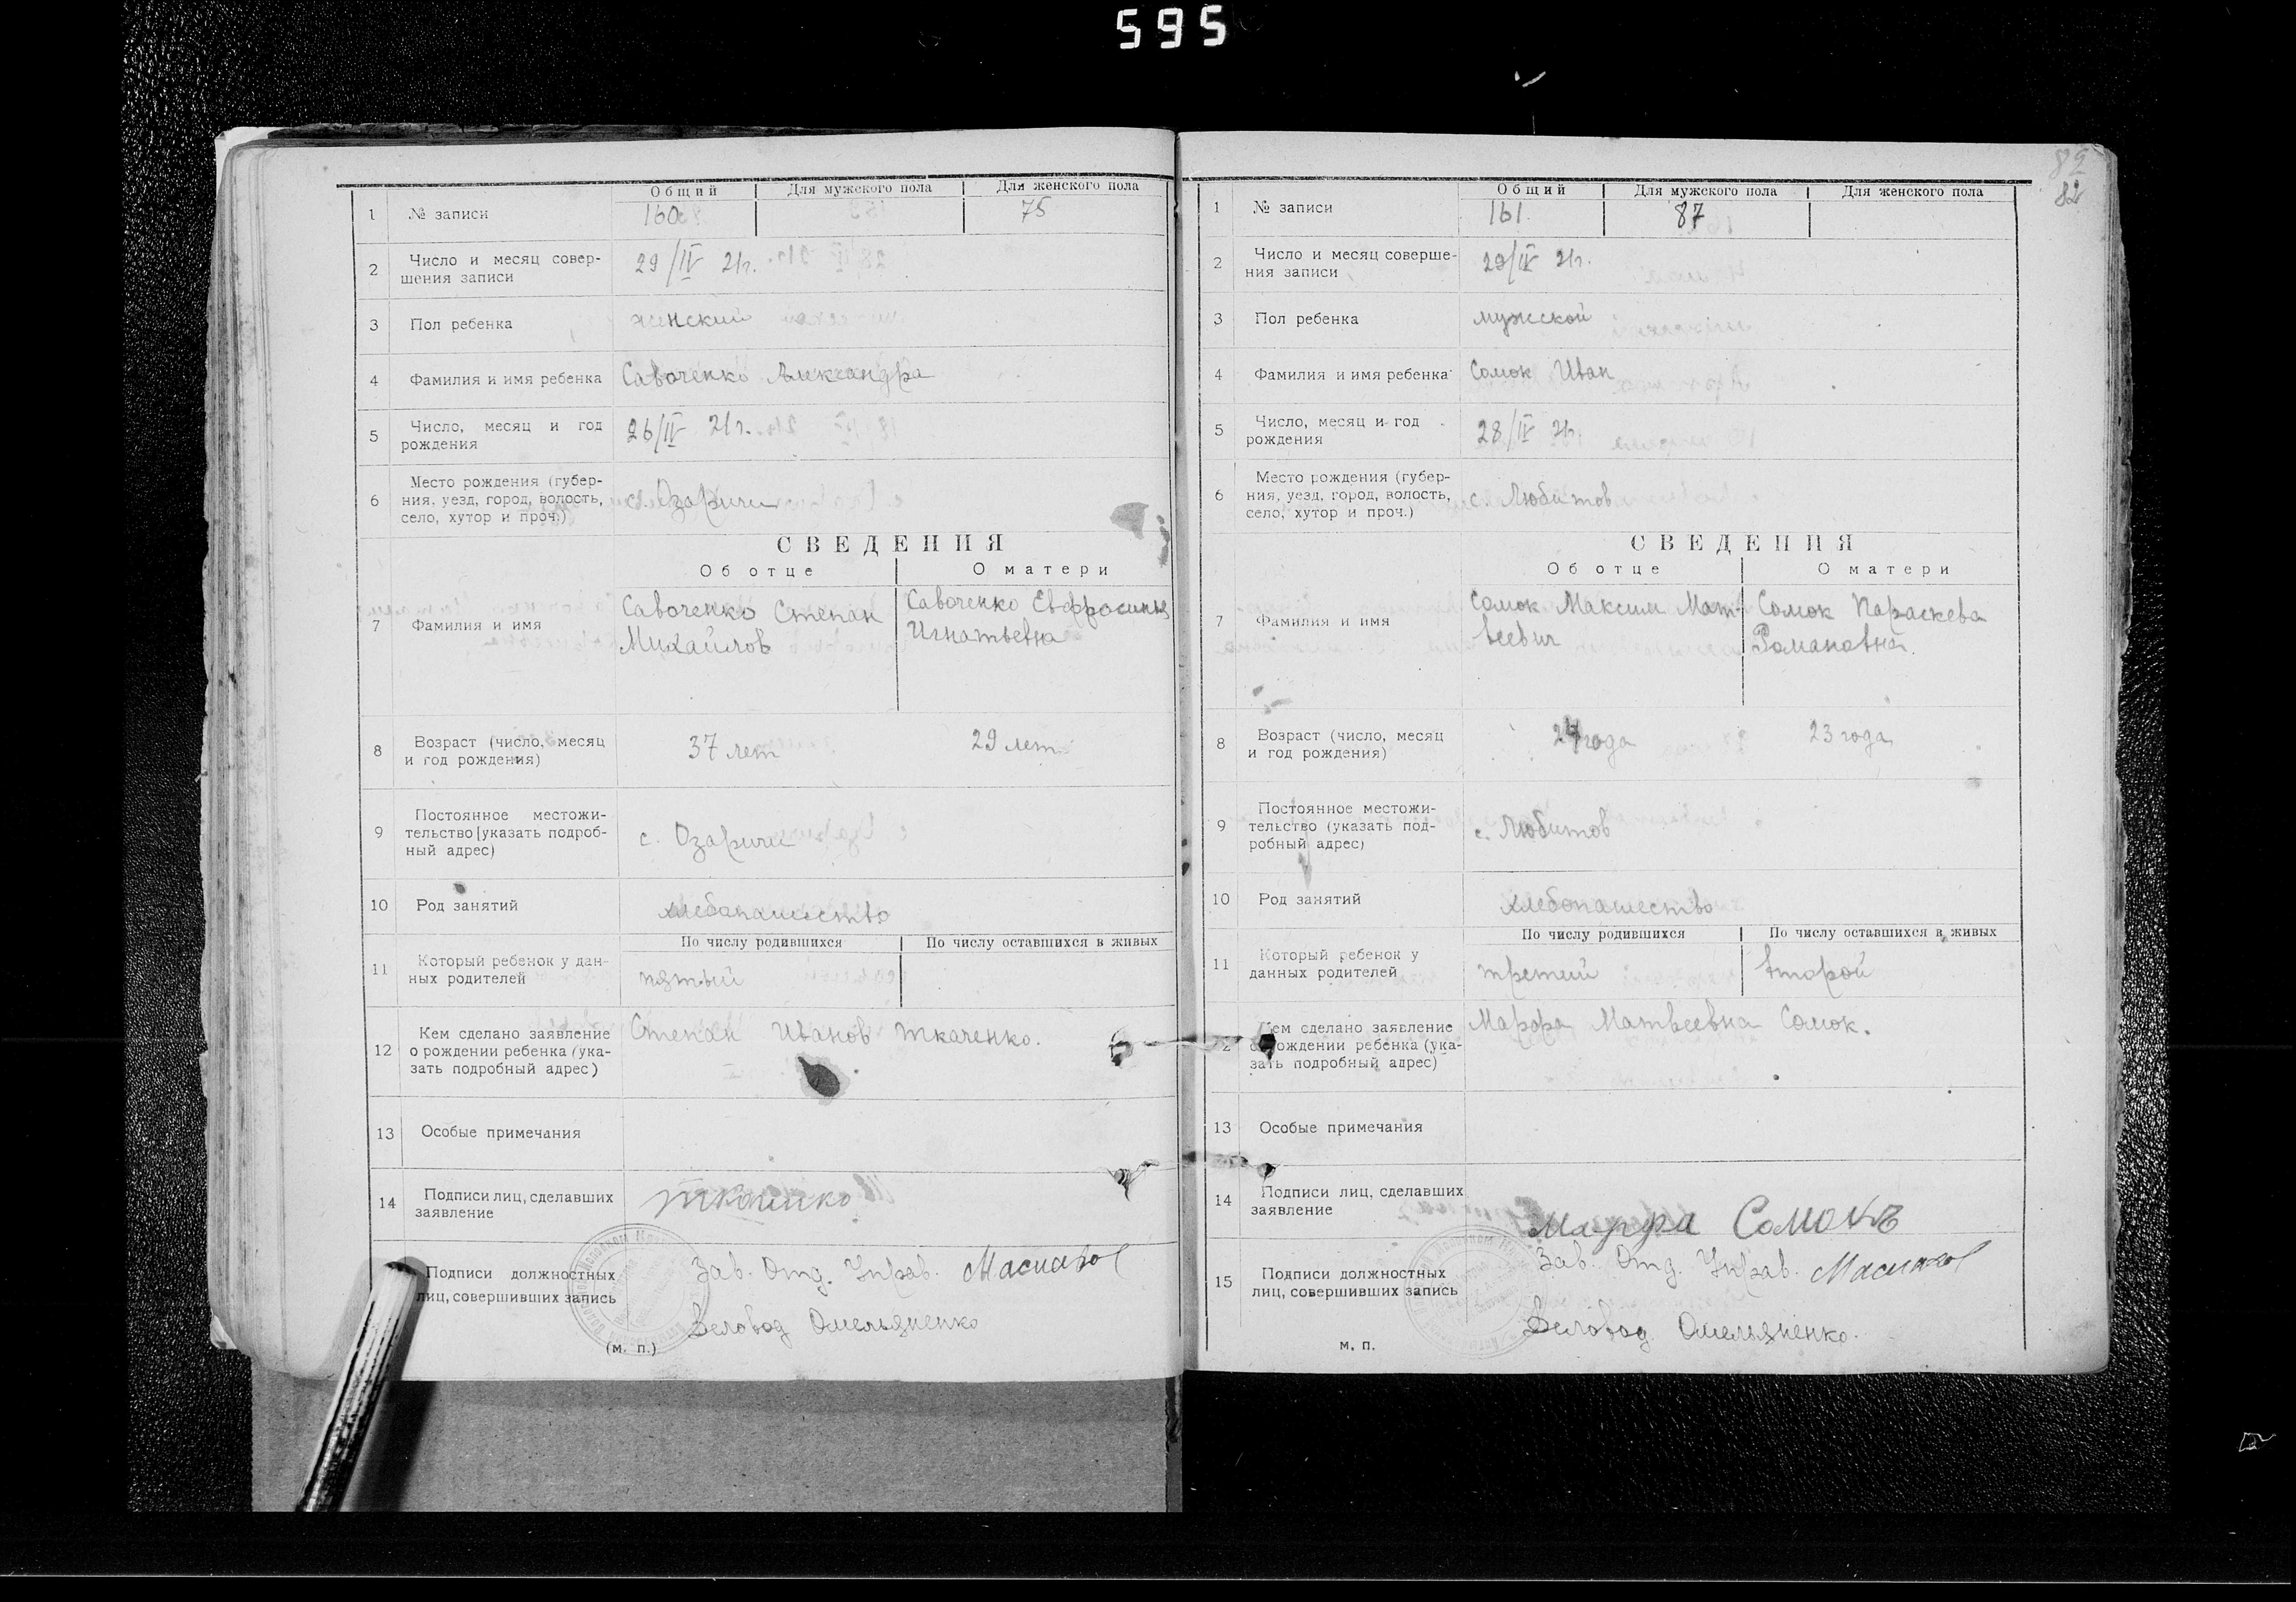 595
Общий Для мужского пола Для женского пола
1 № записи 160 75
2 Число и месяц совер-
шения записи 29/IV 21г.
3 Пол ребенка женский
4 Фамилия и имя ребенка Савоченко Александра
5 Число, месяц и год
рождения 26/IV 21г.
6 Место рождения (губер-
ния, уезд, город, волость,
село, хутор и проч.) с. Озаричи
СВЕДЕНИЯ
Об отце О матери
7 Фамилия и имя Савоченко Степан
Михайлов Савоченко Евфросинья
Игнатьевна
8 Возраст (число, месяц
и год рождения) 37 лет 29 лет
9 Постоянное местожи-
тельство [указать подроб-
ный адрес) с. Озаричи
10 Род занятий хлебопашество
По числу родившихся По числу оставшихся в живых
11 Который ребенок у дан-
ных родителей пятый
12 Кем сделано заявление
о рождении ребенка (ука-
зать подробный адрес) Степан Иванов Ткаченко.
13 Особые примечания
14 Подписи лиц, сделавших
заявление
Подписи должностных
лиц, совершивших запись Зав. Отд. Управ.
Омельяненко
(м. п.)
82
82
Общий Для мужского пола Для женского пола
1 № записи 161. 87
2 Число и месяц соверше-
ния записи 29/IV 21г.
3 Пол ребенка мужской
4 Фамилия и имя ребенка Сомок Иван
5 Число, месяц и год
рождения 28/IV 21г.
6 Место рождения (губер-
ния, уезд, город, волость,
село, хутор и проч.) с. Любитов
СВЕДЕНИЯ
Об отце О матери
7 Фамилия и имя Сомок Максим Мат-
веевич Сомок Параскева
Романовна.
8 Возраст (число, месяц
и год рождения) года 23 года
9 Постоянное местожи-
тельство (указать под-
робный адрес) с. Любитов
10 Род занятий хлебопашество
По числу родившихся По числу оставшихся в живых
11 Который ребенок у
данных родителей третий второй
Кем сделано заявление
о рождении ребенка (ука-
зать подробный адрес) Марфа Матвеевна Сомок.
13 Особые примечания
14 Подписи лиц, сделавших
заявление Марфа Сомокъ
15 Подписи должностных
лиц, совершивших запись Зав. Отд. Управ.
Омельяненко.
м. п.